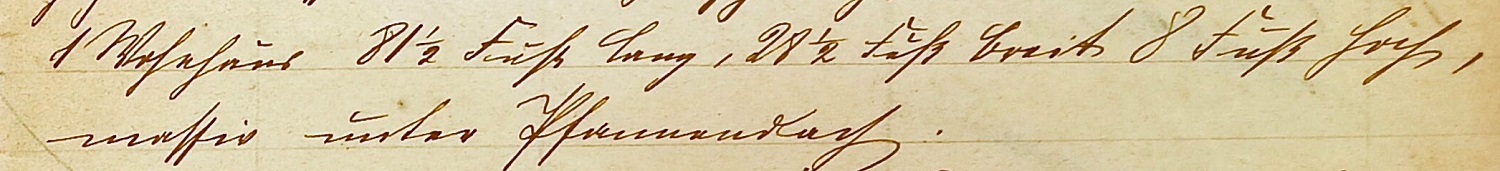 1 Wohnhaus 81½ Fuß lang, 28½ Fuß breit 8 Fuß hoch,
massiv unter Pfannendach.